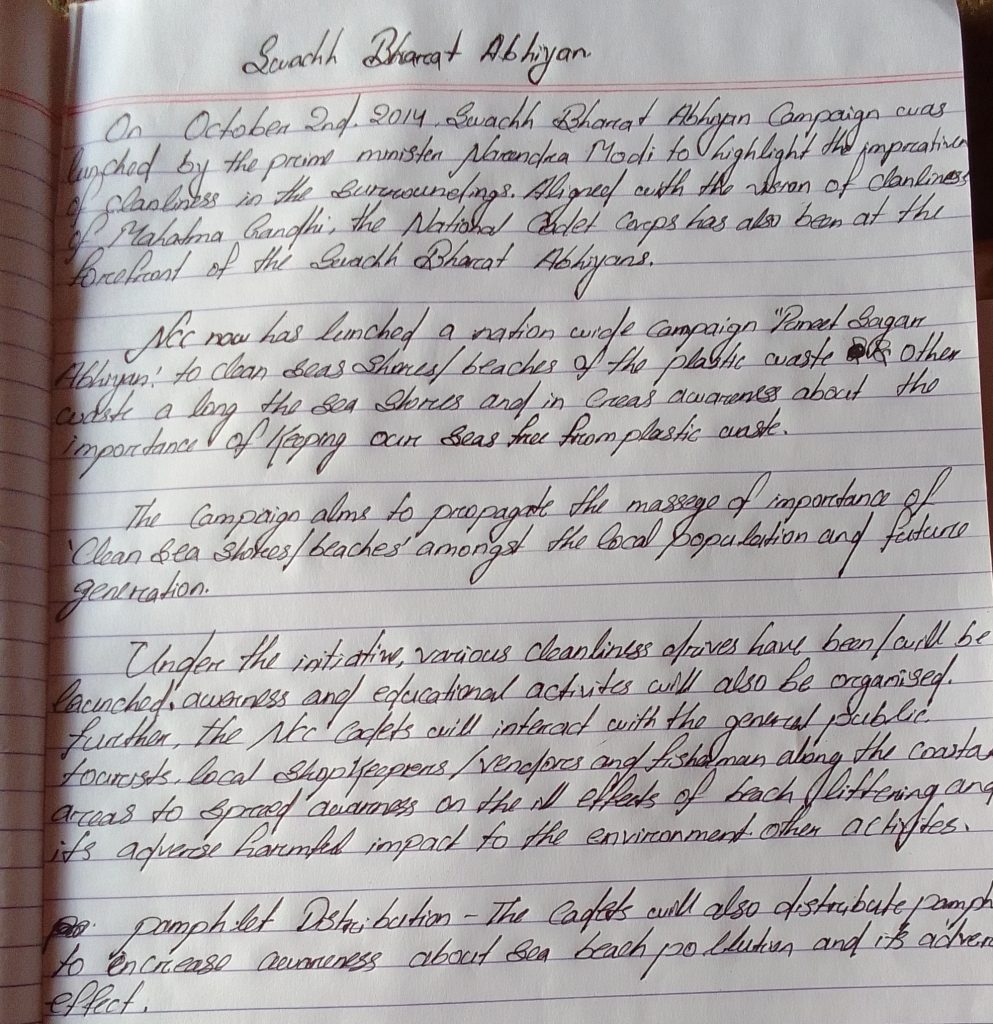 Swachh Bharat Abhiyan
On October 2nd. 2014, Swachh Bharat Abhiyan Campaign was
lunched by the prime minister Narendra Modi to highlight the imperative
of clanliness in the surroundings. Aligned with the vision of clanliness
of Mahatma Gandhi, the National Cadet Corps has also been at the
forefront of the Swachh Bharat Abhiyans.
Ncc now has lunched a nation wide campaign "Puneet Sagar
Abhiyan' to clean seas shores/ beaches of the plastic waste other
waste a long the sea shores and in creas awareness about the
importance of keeping our seas free from plastic waste.
The campaign alms to propagate the massege of importance of
'Clean sea shores/beaches' amongst the local population and future
generation.
Under the initiative, various cleanliness drives have been/will be
launched. awerness and educational activites will also be organised.
further, the Ncc cadets will interact with the general public
tourists, local shopkeepers/vendores and fisherman along the coasta
areas to spread awarness on the ill effects of beach littering and
it's adverse harmful impact to the environment. other activites.
pamphlet Distribution - The Cadets will also distribute pamph
to encrease awareness about sea beach pollution and it's adver
effect.